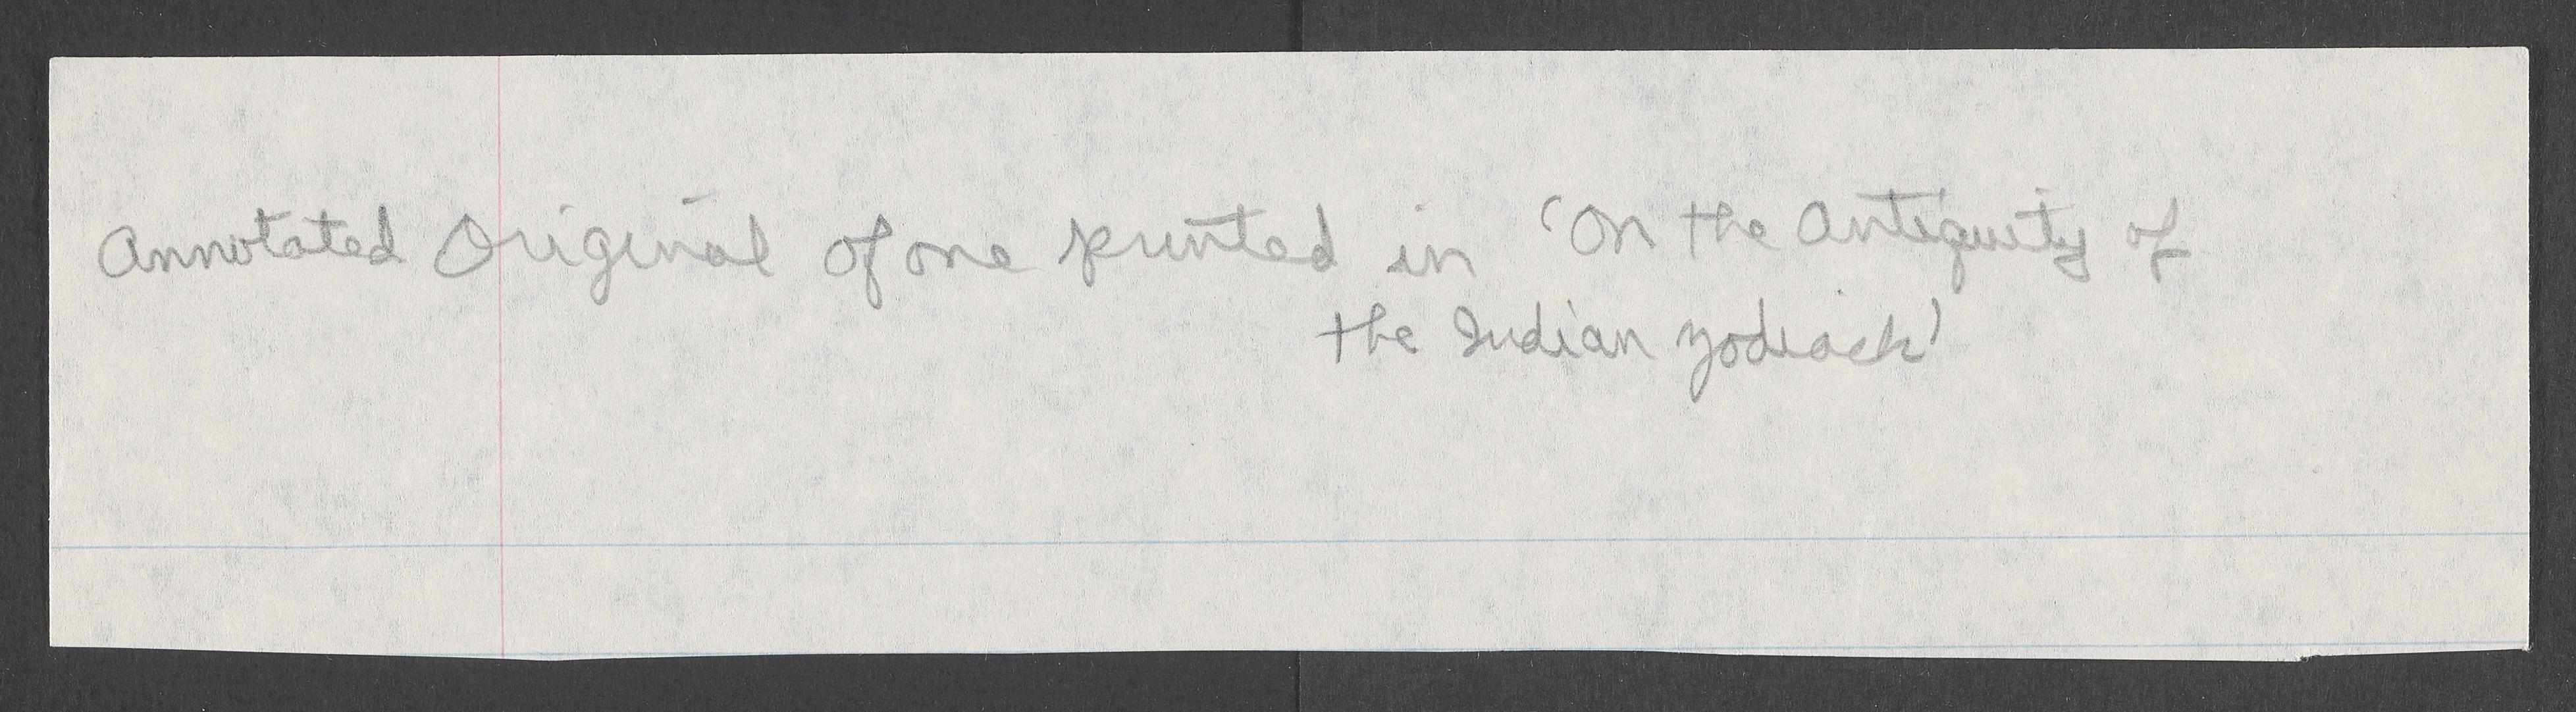 Annotated Original of one printed in 'On the Antiquity of
the Indian Zodiack'